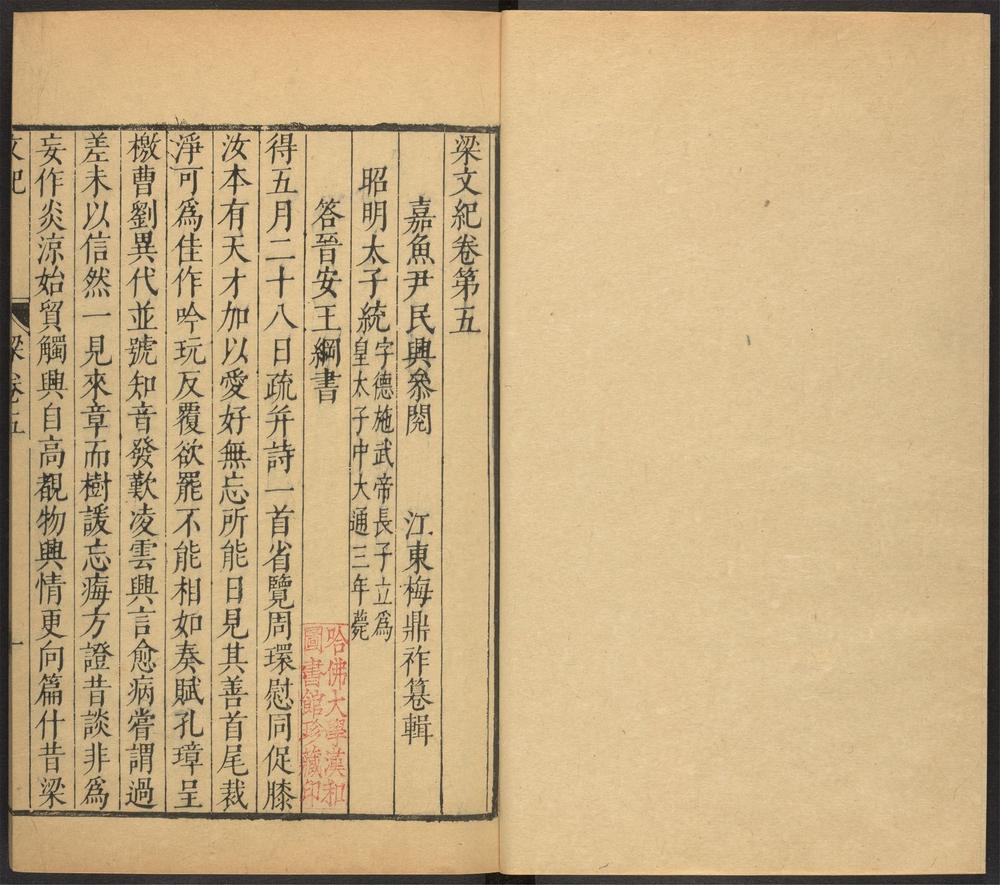 梁文紀卷第五
嘉魚尹民興叅閱 江東梅鼎祚纂輯
昭明太子統字德施武帝長子立爲
皇太子中大通三年薨
答晉安王綱書
得五月二十八日疏并詩一首省覽周環慰同促膝
汝本有天才加以愛好無忘所能日見其善首尾裁
淨可爲佳作吟玩反覆欲罷不能相如奏賦孔璋呈
檄曹劉異代並號知音發歎凌雲興言愈病嘗謂過
差未以信然一見來章而樹諼忘痗方證昔談非爲
妄作炎涼始貿觸興自高覩物興情更向篇什昔梁
文紀 梁卷五 一
哈佛大學漢和
圖書館珍藏印